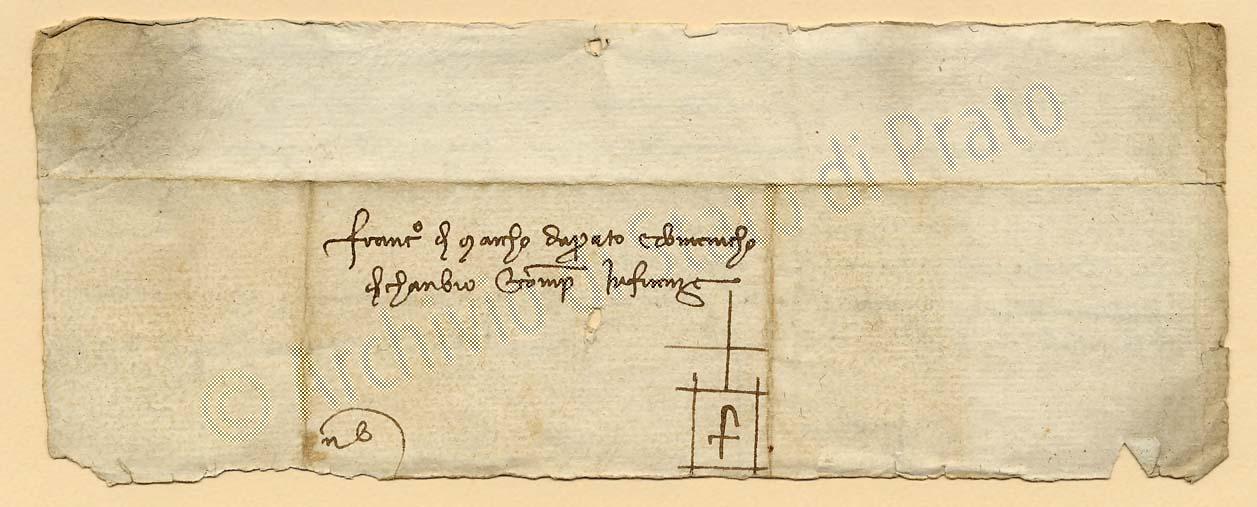 Francº di Marcho daprato e domenicho
di chanbio e Comp Infirenze
f
© Archivio di Stato di Prato